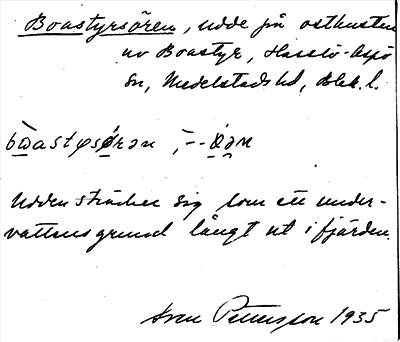 Boastyrsören, udde på ostkusten
av Boastyr, Hasslö-Aspö
sn, Medelstads hd, Blek. l.
bωastysǿrən, -- ǿən
Udden sträcker sig som ett under-
vattensgrund långt ut i fjärden.
Sven Pettersson 1935